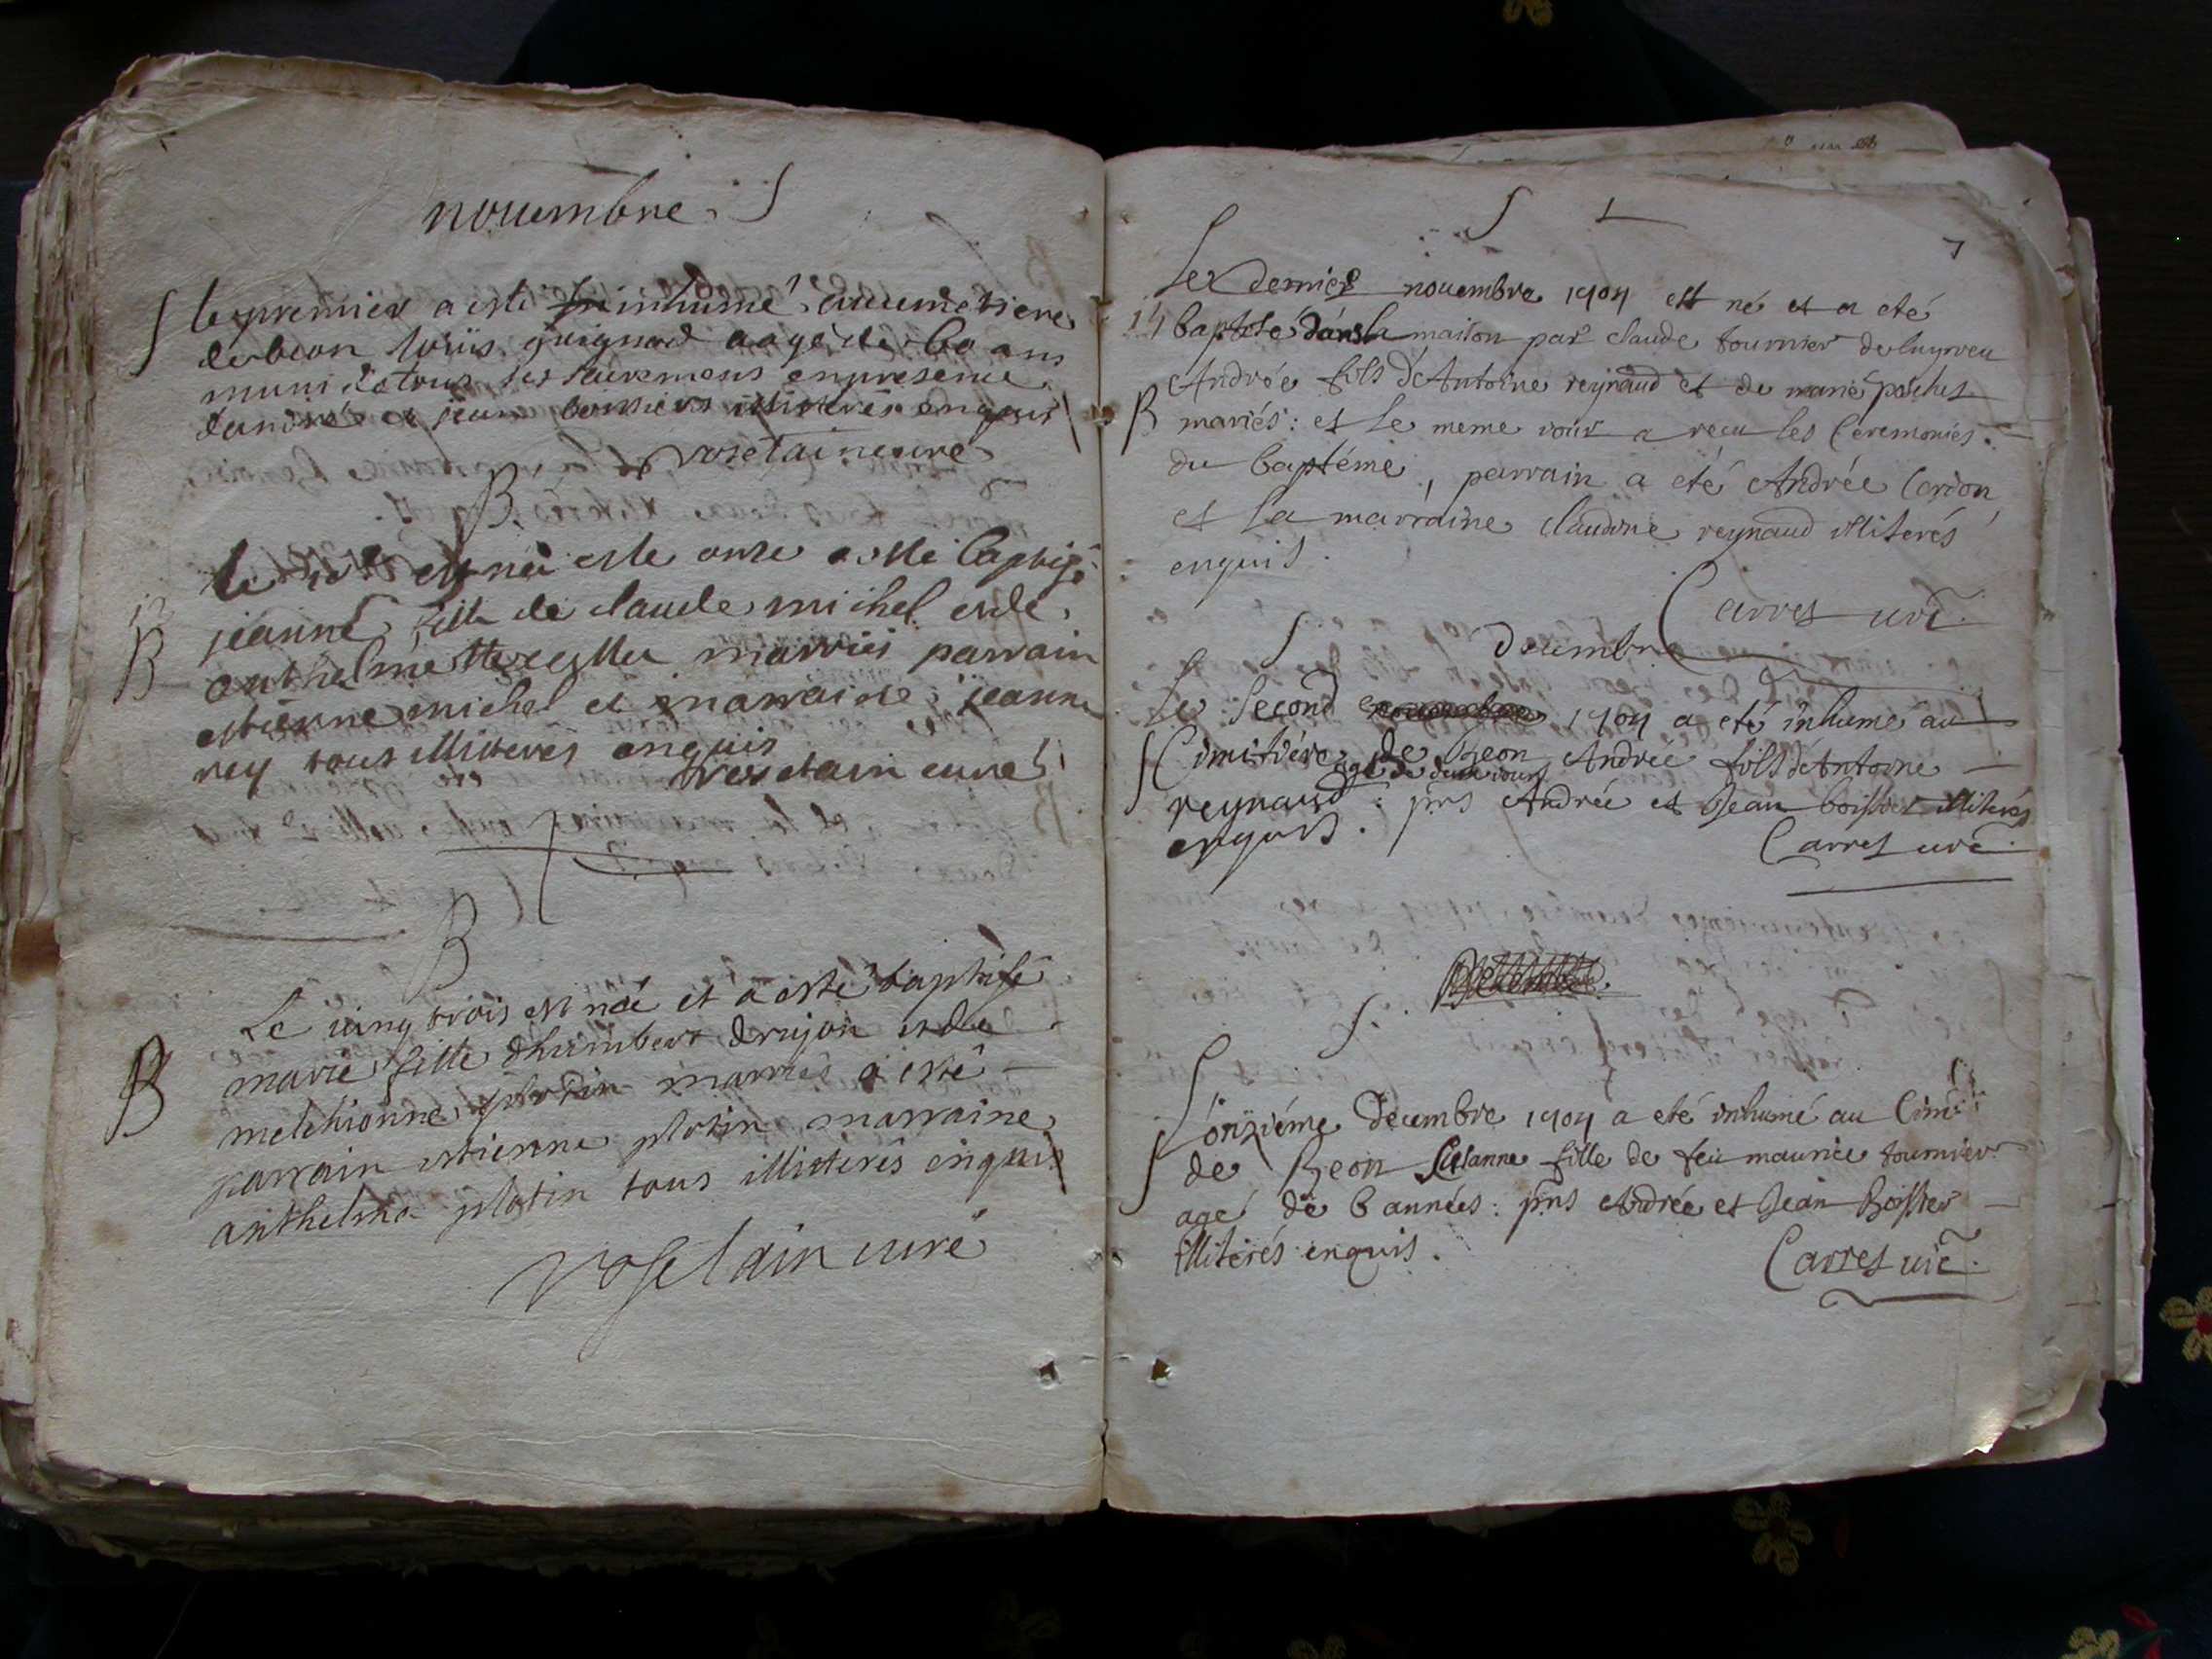 nouembre. S
S le premier a esté inhumé au cimetiere
de beon loüis guignard aagé de 60 ans
muni de tous ses sacremens en presence
d'andré et jean boissiers illiterés enquis
vosetain curé
B.
le est née et le onse a esté baptisé
12
B jeanne fille de claude michel et de
anthelmette marriés parrain
estienne michel et marraine jeanne
rey tous illiterés enquis
vosetain curé
B
Le uing trois est née et a esté baptisé
B marie fille d'humbert drujon et de
melchionne plotin marriés a esté
parrain estienne plotin marraine
anthelma plotin tous illisterés enquis
vosetain curé
S 1
7
Le dernier nouembre 1704 est né et a eté
14 baptisé dans la maison par claude tournier de luyrieu
Andrée fils d'Antoine reynaud et de marie
B mariés: et le meme iour a reçu les Ceremonies
du baptéme, parrain a eté Andrée Cordon
et la marraine claudine reynaud illiterés
enquis.
Carres curé.
S decembre
Le second 1704 a eté inhumé au
S Cimitiére de Beon Andrée fils d'Antoine
agé de deux iours
reynaud: pns Andrée et Jean boissier illiterés
enquis.
Carres curé.
S.
L'onziéme Decembre 1704 a eté inhumé au Cimet
S de Beon Susanne fille de feu maurice tournier
agé de 6 années: pns Andrée et Jean Boissier
illiterés enquis.
Carres curé.